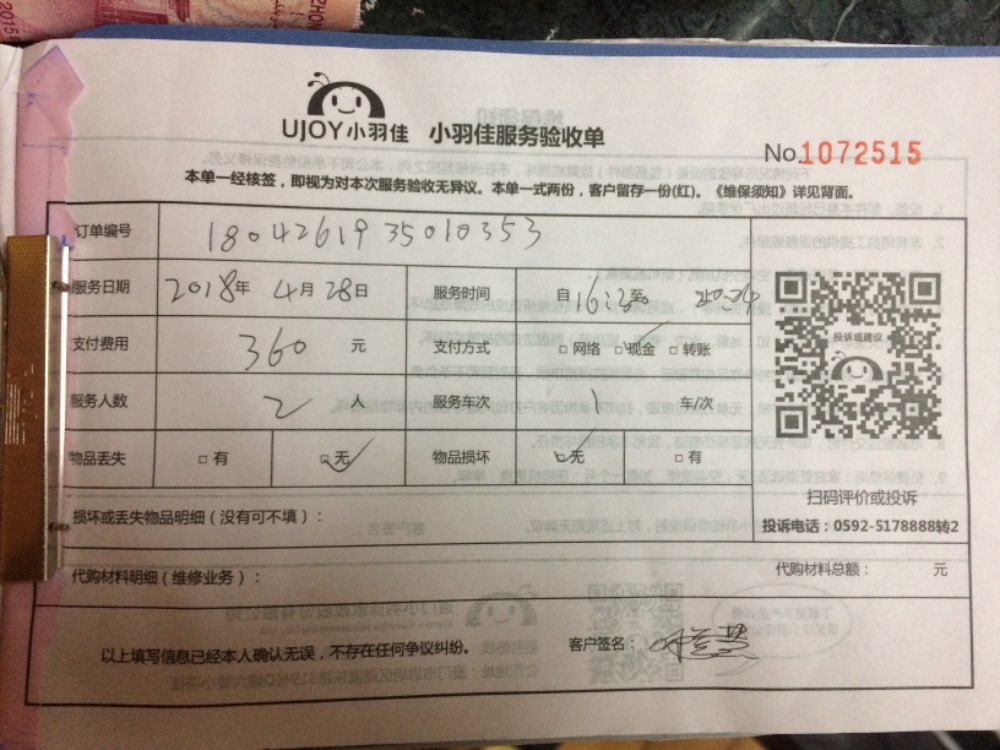 UJOY小羽佳 小羽佳服务验收单
No.1072515
本单一经核签，即视为对本次服务验收无异议。本单一式两份，客户留存一份(红)。《维保须知》详见背面。
订单编号 1804261935010353
服务日期 2018年 4月28日 服务时间 自 至
支付费用 360 元 支付方式 □网络 □现金 □转账
服务人数 2 人 服务车次 1 车/次
物品丢失 □有 □无 物品损坏 □无 □有
投诉或建议
扫码评价或投诉
投诉电话：0592-5178888转2
损坏或丢失物品明细（没有可不填）：
代购材料明细（维修业务）： 代购材料总额： 元
以上填写信息已经本人确认无误，不存在任何争议纠纷。 客户签名：